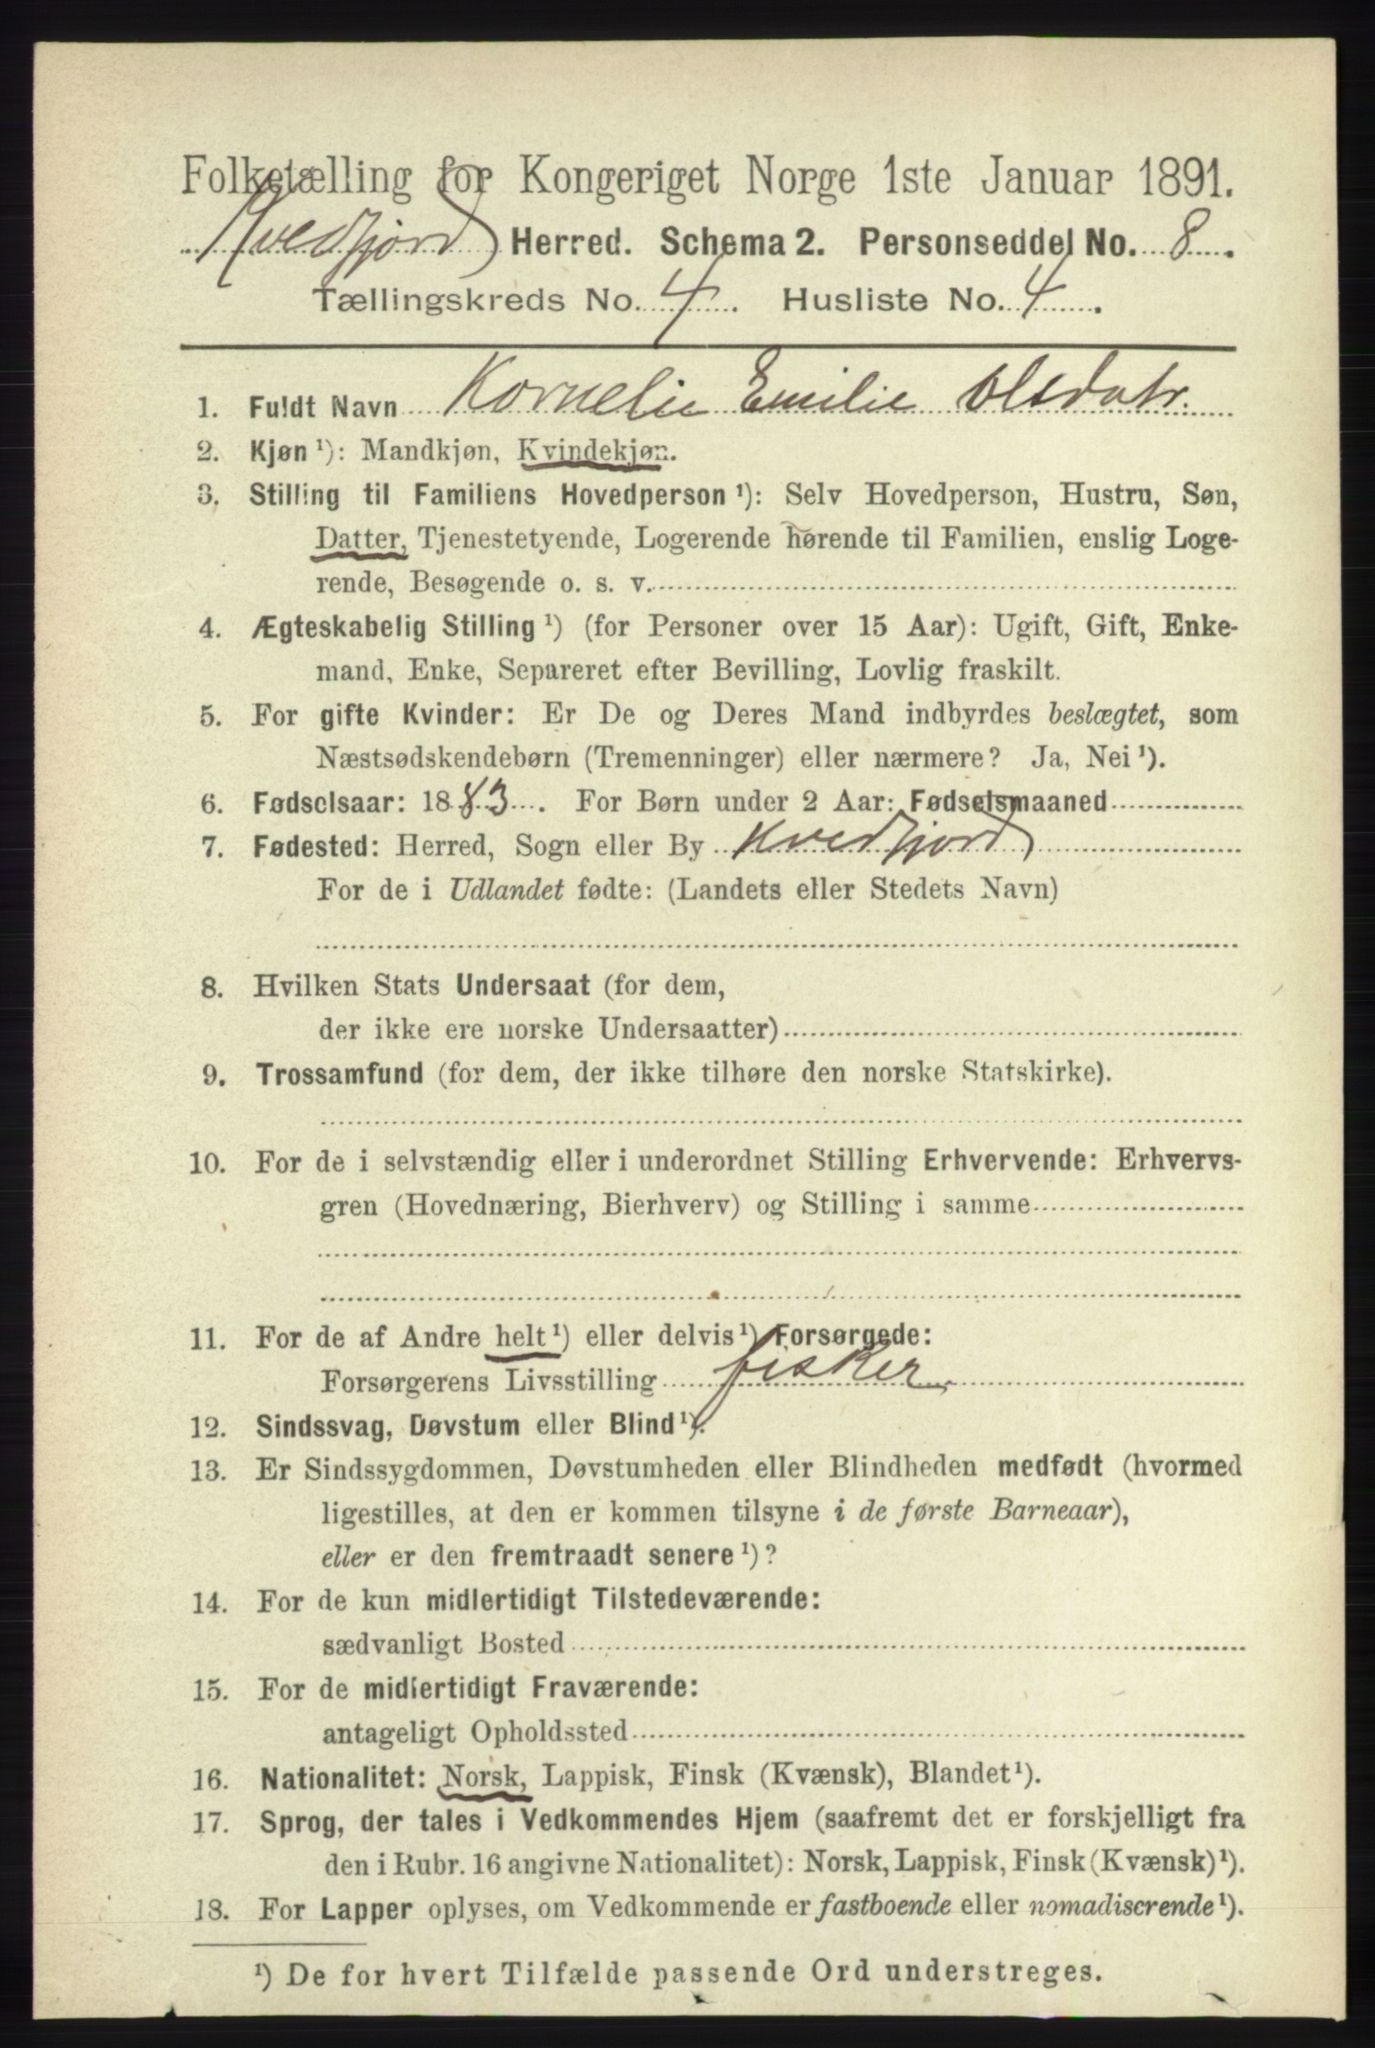 Folketælling for Kongeriget Norge 1ste Januar 1891.
Kvedfjord Herred. Schema 2. Personseddel No. 8.
Tællingskreds No. 4. Husliste No. 4.
1. Fuldt Navn Kornelie Emilie Olsdatr.
2. Kjøn ¹): Mandkjøn, Kvindekjøn.
3. Stilling til Familiens Hovedperson ¹): Selv Hovedperson, Hustru, Søn,
Datter, Tjenestetyende, Logerende hørende til Familien, enslig Loge-
rende, Besøgende o. s. v.
4. Ægteskabelig Stilling ¹) (for Personer over 15 Aar): Ugift, Gift, Enke-
mand, Enke, Separeret efter Bevilling, Lovlig fraskilt.
5. For gifte Kvinder: Er De og Deres Mand indbyrdes beslægtet, som
Næstsødskendebørn (Tremenninger) eller nærmere? Ja, Nei ¹).
6. Fødselsaar: 1883. For Børn under 2 Aar: Fødselsmaaned
7. Fødested: Herred, Sogn eller By Kvedfjord
For de i Udlandet fødte: (Landets eller Stedets Navn)
8. Hvilken Stats Undersaat (for dem,
der ikke ere norske Undersaatter)
9. Trossamfund (for dem, der ikke tilhøre den norske Statskirke).
10. For de i selvstændig eller i underordnet Stilling Erhvervende: Erhvervs-
gren (Hovednæring, Bierhverv) og Stilling i samme
11. For de af Andre helt ¹) eller delvis ¹) Forsørgede:
Forsørgerens Livsstilling fisker
12. Sindssvag, Døvstum eller Blind ¹).
13. Er Sindssygdommen, Døvstumheden eller Blindheden medfødt (hvormed
ligestilles, at den er kommen tilsyne i de første Barneaar),
eller er den fremtraadt senere ¹)?
14. For de kun midlertidigt Tilstedeværende:
sædvanligt Bosted
15. For de midlertidigt Fraværende:
antageligt Opholdssted
16. Nationalitet: Norsk, Lappisk, Finsk (Kvænsk), Blandet ¹).
17. Sprog, der tales i Vedkommendes Hjem (saafremt det er forskjelligt fra
den i Rubr. 16 angivne Nationalitet): Norsk, Lappisk, Finsk (Kvænsk) ¹).
18. For Lapper oplyses, om Vedkommende er fastboende eller nomadiserende ¹).
¹) De for hvert Tilfælde passende Ord understreges.